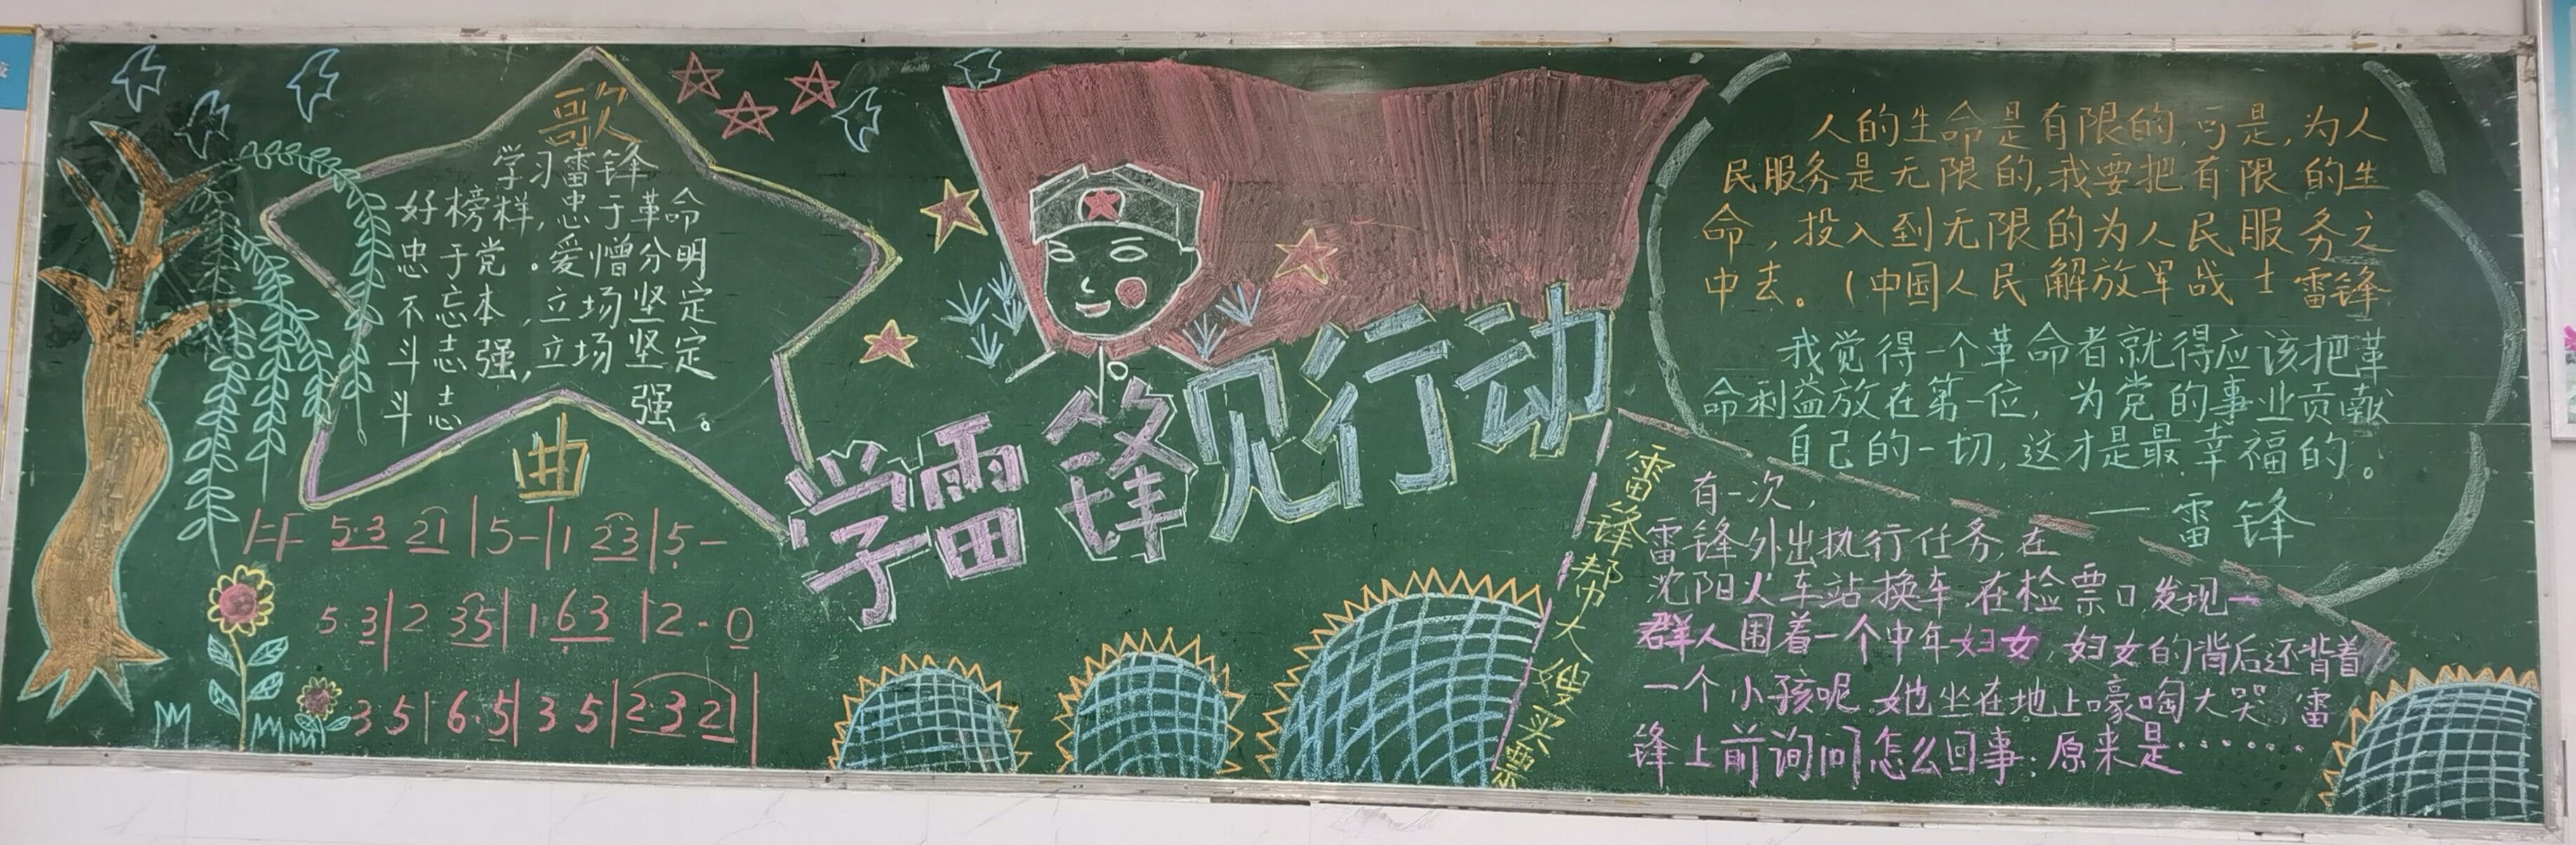 歌
学习雷锋
好榜样,忠于革命
忠于党。爱憎分明
不忘本,立场坚定
斗志强,立场坚定
斗志强。
曲
5·3 21|5-|1 23|5-
5·3|2 35|1 63|2·0
35|6·5|35|2·32|
学雷锋见行动
人的生命是有限的,可是,为人
民服务是无限的,我要把有限的生
命,投入到无限的为人民服务之
中去。(中国人民解放军战士雷锋
我觉得一个革命者就得应该把革
命利益放在第一位,为党的事业贡献
自己的一切,这才是最幸福的。
—雷锋
雷锋帮大嫂买票
有一次,
雷锋外出执行任务,在
沈阳火车站换车,在检票口发现一
群人围着一个中年妇女,妇女的背后还背着
一个小孩呢,她坐在地上嚎啕大哭,雷
锋上前询问怎么回事:原来是……